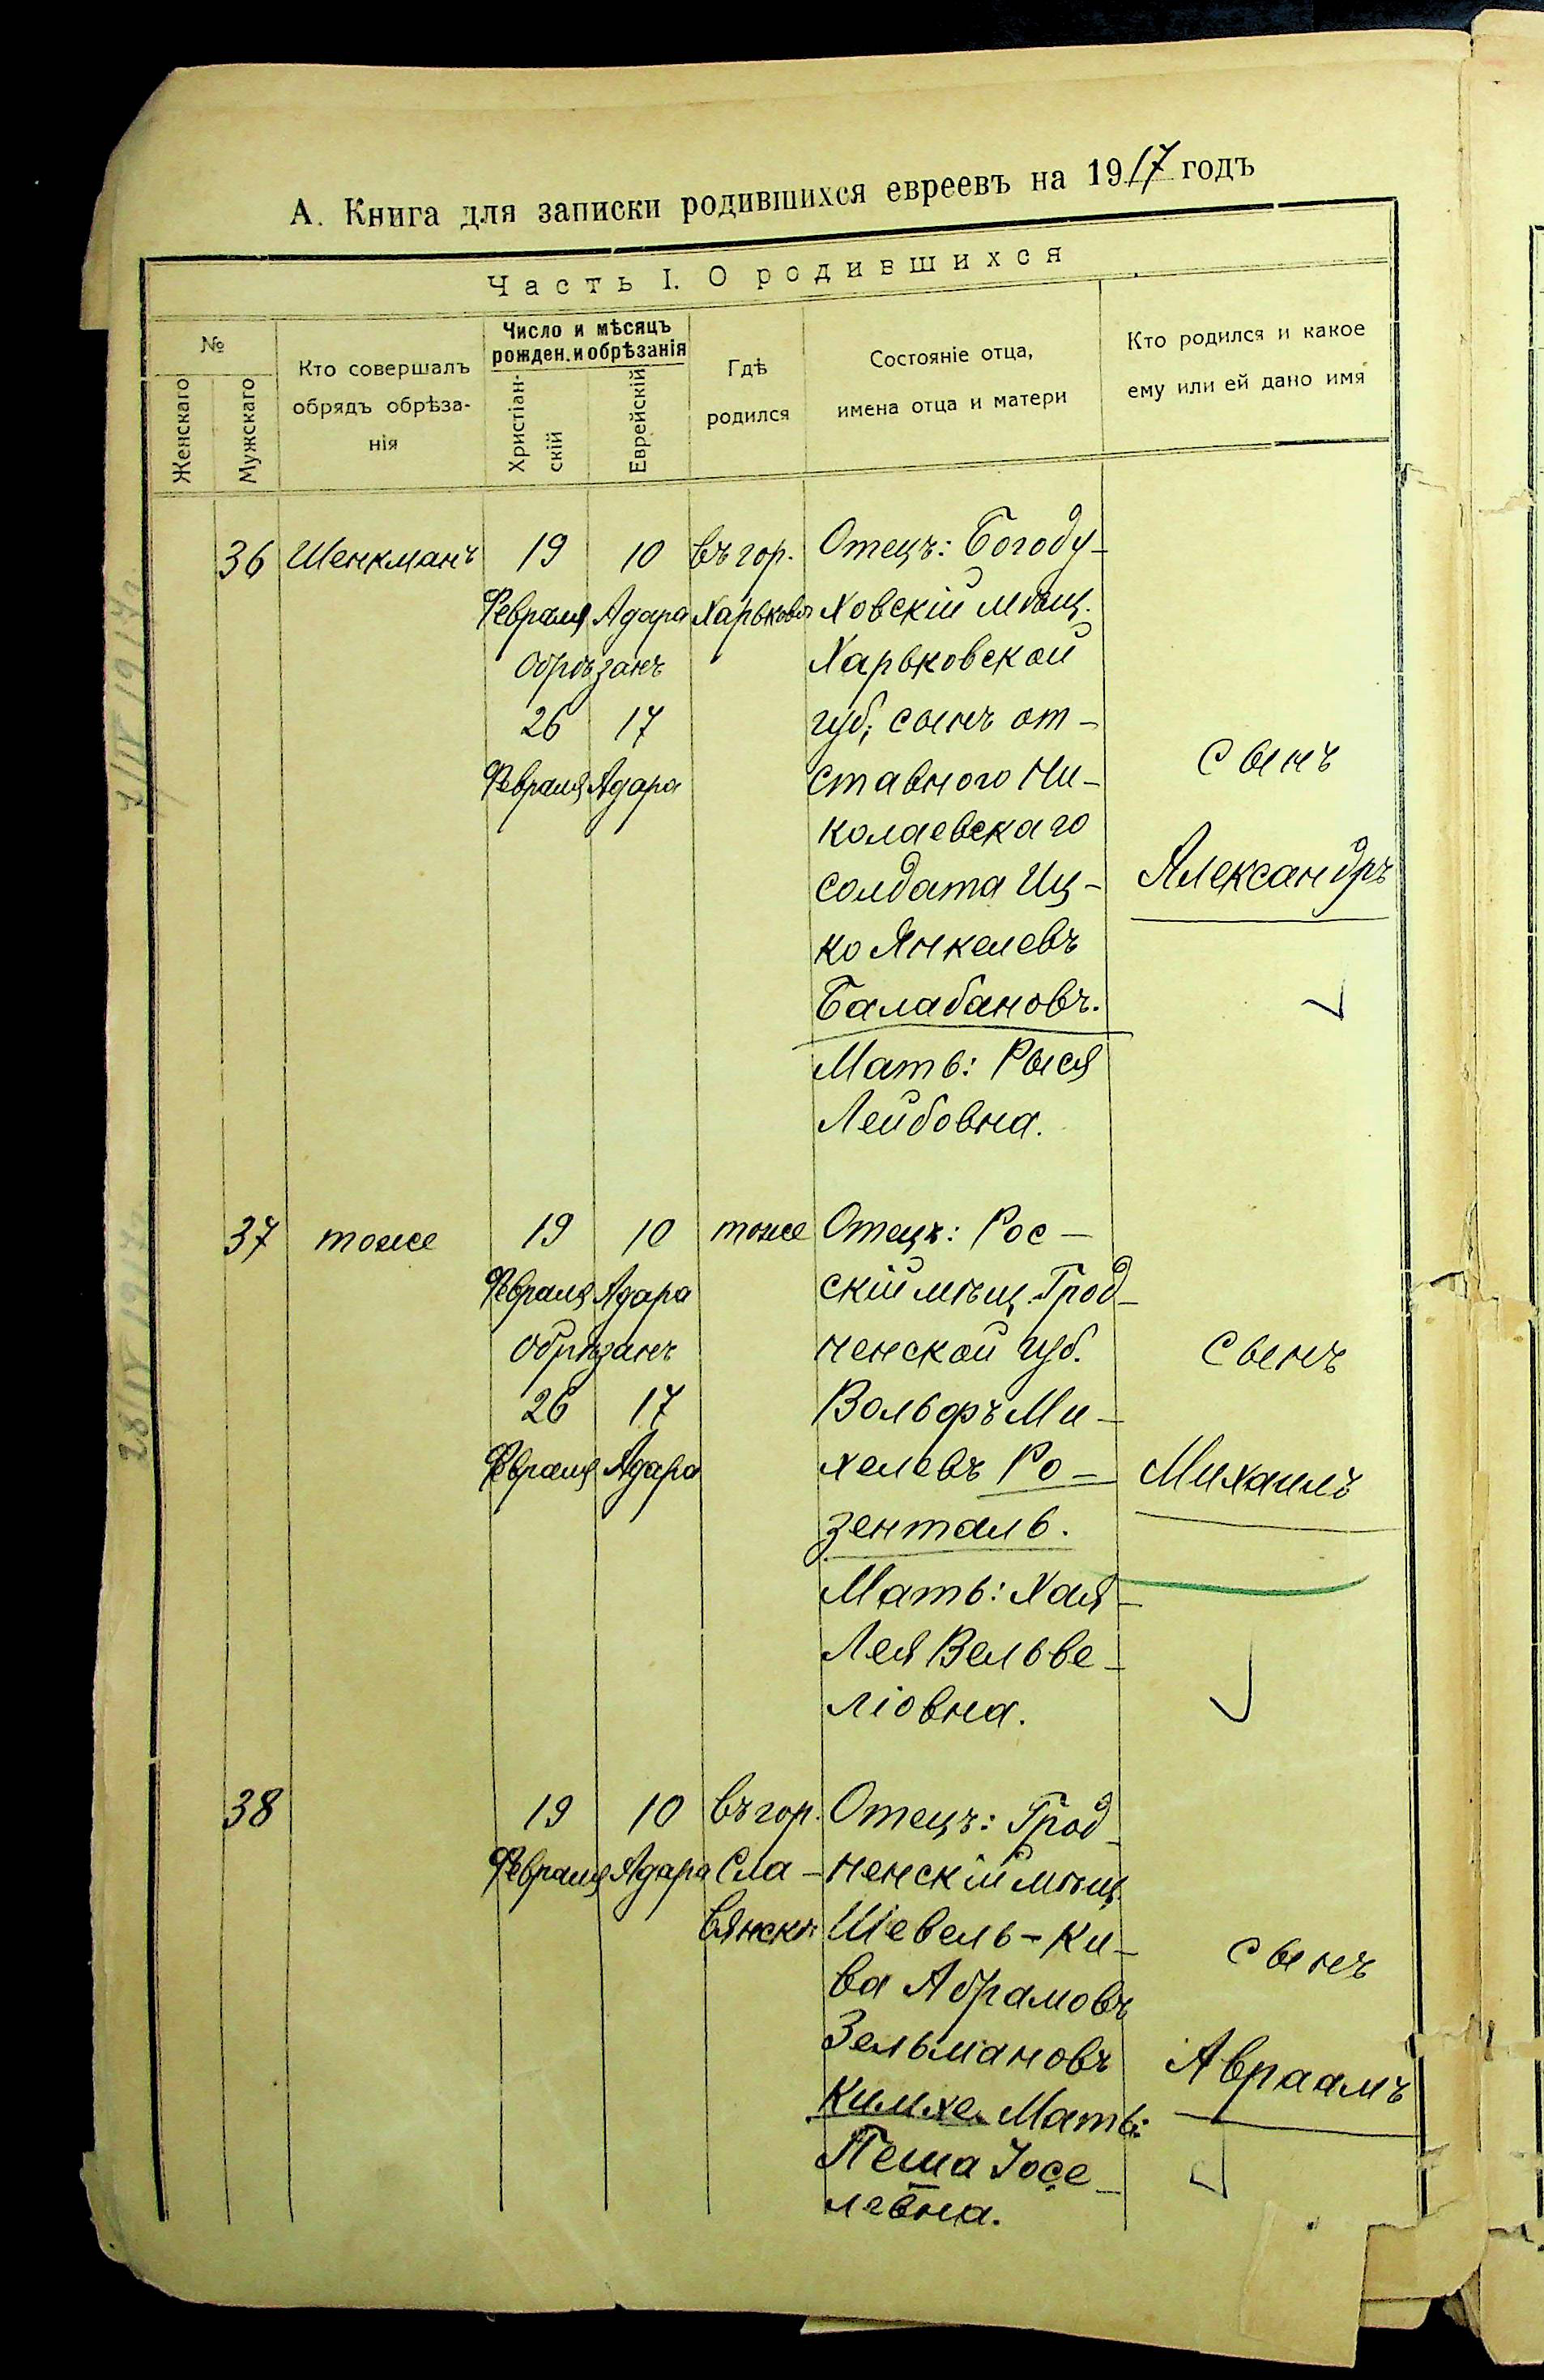 А. Книга для записки родившихся евреевъ на 1917 годъ
Часть I. О родившихся
№
Женскаго
Мужскаго
Кто совершалъ
обрядъ обрѣза-
нія
Число и мѣсяцъ
рожден. и обрѣзанія
Христіан-
скій
Еврейскій
Гдѣ
родился
Состояніе отца,
имена отца и матери
Кто родился и какое
ему или ей дано имя
36
Шенкманъ
19
Февраля
10
Адара
Обрѣзанъ
26
Февраля
17
Адара
въ гор.
Харьковѣ
Отецъ: Богоду-
ховскій мѣщ.
Харьковской
губ., сынъ от-
ставного Ни-
колаевскаго
солдата Иц-
ко Янкелевъ
Балабановъ.
Мать: Рыся
Лейбовна.
сынъ
Александръ
37
тоже
19
Февраля
10
Адара
Обрѣзанъ
26
Февраля
17
Адара
тоже
Отецъ: Рос-
скій мѣщ. Грод-
ненской губ.
Вольфъ Ми-
хелевъ Ро-
зенталь.
Мать: Хая-
Лея Вельве-
ліовна.
сынъ
Михаилъ
38
19
Февраля
10
Адара
въ гор.
Сла-
вянскѣ
Отецъ: Грод-
ненскій мѣщ.
Шевель-Ки-
ва Абрамовъ
Зельмановъ
Кимхе. Мать:
Пеша Іосе-
левна.
сынъ
Авраамъ